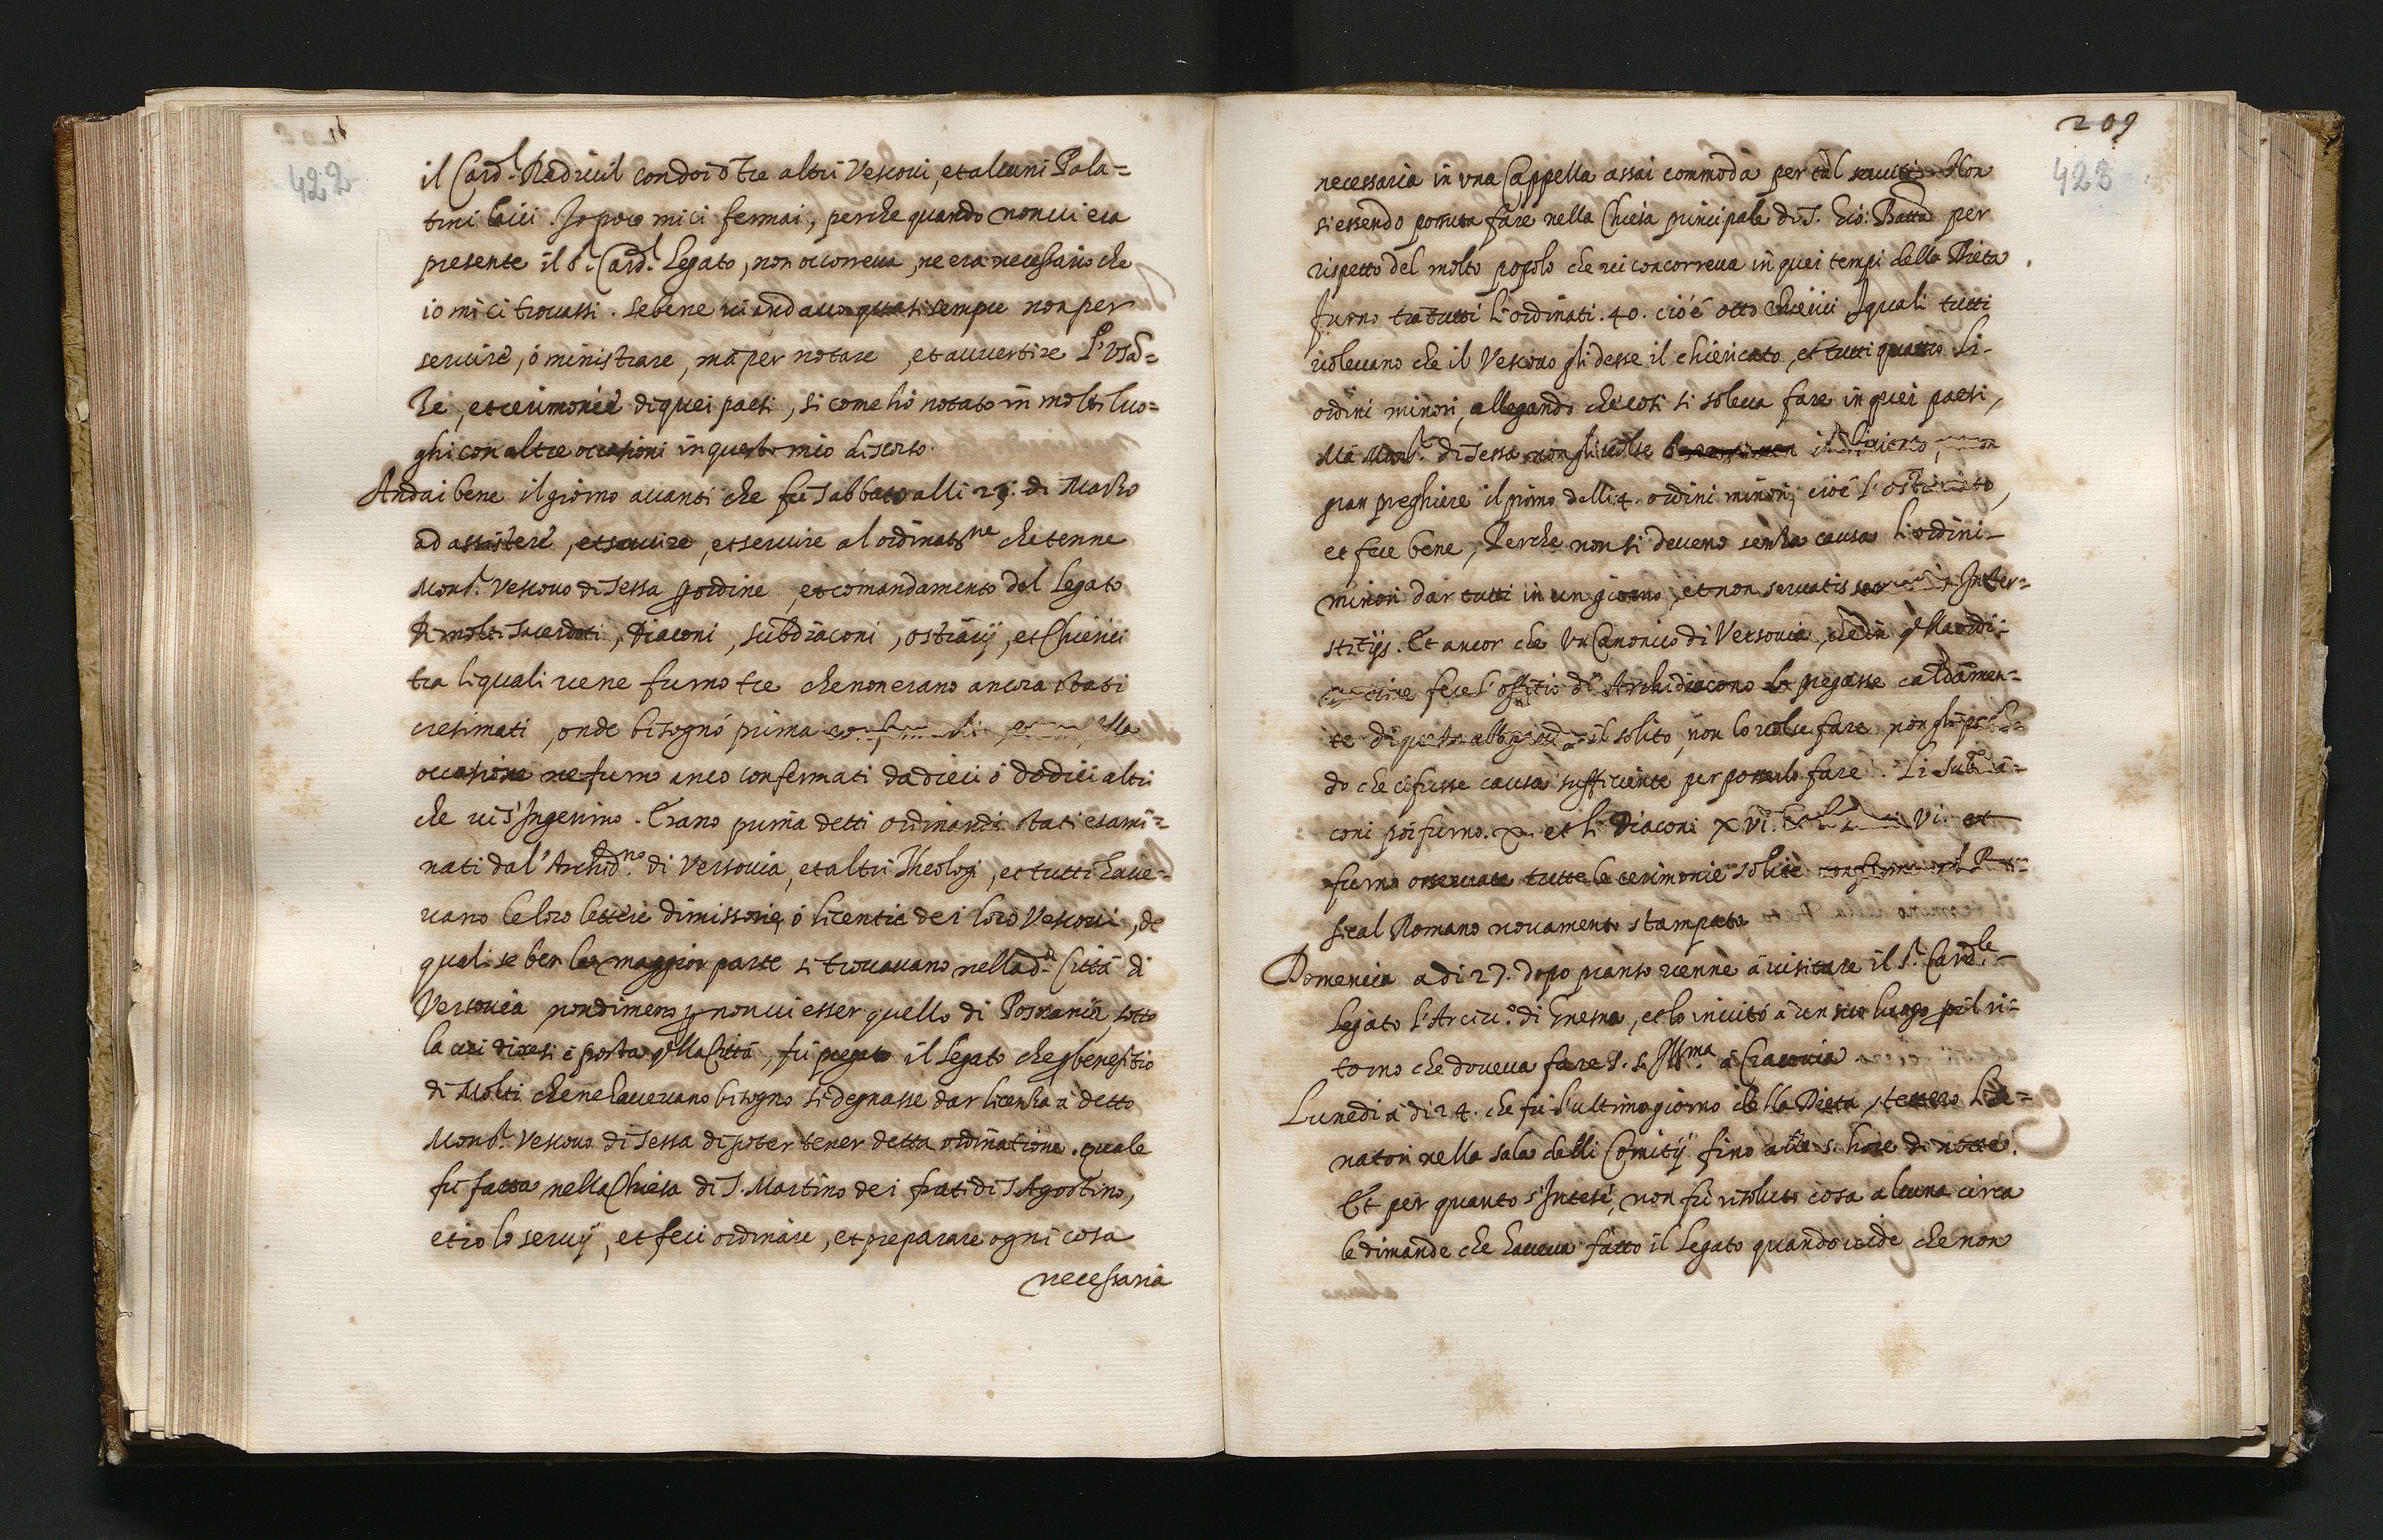 422
il Card.l Radiuil con doi ò tre altri Vescoui, et alcuni Pala=
tini laici. Io poco mi ci fermai, perche quando non ui era
presente il S.r Card.l Legato, non occorreua, ne era necessario che
io mi ci trouassi. Sebene ui andauo quasi sempre non per
seruire, ò ministrare, mà per notare, et auuertire l'vsan=
ze, et cerimonie di quei paesi, si come hò notato in molti luo=
ghi con altre occasioni in questo mio discorso.
Andai bene il giorno auanti che fù Sabbato alli di Marzo
ad assistere, et seruire, et seruire al ordinat.ne che tenne
Mons.r Vescouo di Sessa per ordine, et comandamento del Legato
di molti sacerdoti, Diaconi, subdiaconi, ostiarij, et Chierici
tra li quali ue ne furno tre che non erano ancora stati
cresimati, onde bisognò prima
occasione ne furno anco confermati da dieci ò dodici altri
che ui s'ingerirno. Erano prima detti ordinandi stati esami=
nati dal'Archid.no di Versouia, et altri Theologi, et tutti haue=
uano le loro lettere dimissorie, ò licentie dei loro Vescoui, de
quali se ben la maggior parte si trouauano nella d.a Città di
Versouia nondimeno per non ui esser quello di Posnania, sotto
la cui diocesi è posta quella Città, fù pregato il Legato che per benefitio
di Molti che ne haueuano bisogno si degnasse dar licenza à detto
Mons.r Vescouo di Sessa di poter tener detta ordinatione. quale
fù fatta nella Chiesa di S. Martino dei frati di S. Agostino,
et io lo seruij, et feci ordinare, et preparare ogni cosa
necessaria
209
423
necessaria in vna Cappella assai commoda per tal seruitio. Non
si essendo potuta fare nella Chiesa principale di S. Gio: Batta per
rispetto del molto popolo che ui concorreua in quei tempi della Dieta.
Furno tra tutti li ordinati. 40. cioè otto Chierici I quali tutti
uoleuano che il Vescouo gli desse il chiericato, et tutti quattro li
ordini minori, allegando che cosi si soleua fare in quei paesi,
Mà Mons.r di Sessa non gli uolse
gran preghiere il primo delli 4. ordini minori, cioè l'ostiariato,
et fece bene, Perche non si deueno senza causa li ordini
minori dar tutti in un giorno, et non seruatis Inter=
stitijs. Et ancor che vn Canonico di Versouia, che in quella ordi=
fece l'offitio di Archidiacono lo pregasse caldamen=
te di questo allegando il solito, non lo uolse fare, non gli
do che ci fusse causa sufficiente per poterlo fare. Li subdia=
coni poi furno. x. et li Diaconi xvi. vi. et
furno osseruate tutte le cerimonie solite
fical Romano nouamente stampato.
Domenica a di 27. dopo pranso uenne à uisitare il S.r Card.le
Legato l'Arciu.o di Gnesna, et lo inuitò à un suo luogo pel ri=
torno che doueua fare S. S. Ill.ma à Cracouia
Lunedi à di 24. che fù l'ultimo giorno della Dieta, stettero li Se=
natori nella sala delli Comitij fino alle 5. hore di notte.
Et per quanto s'Intese, non fù risoluto cosa alcuna circa
le dimande che haueua fatto il Legato quando uide che non